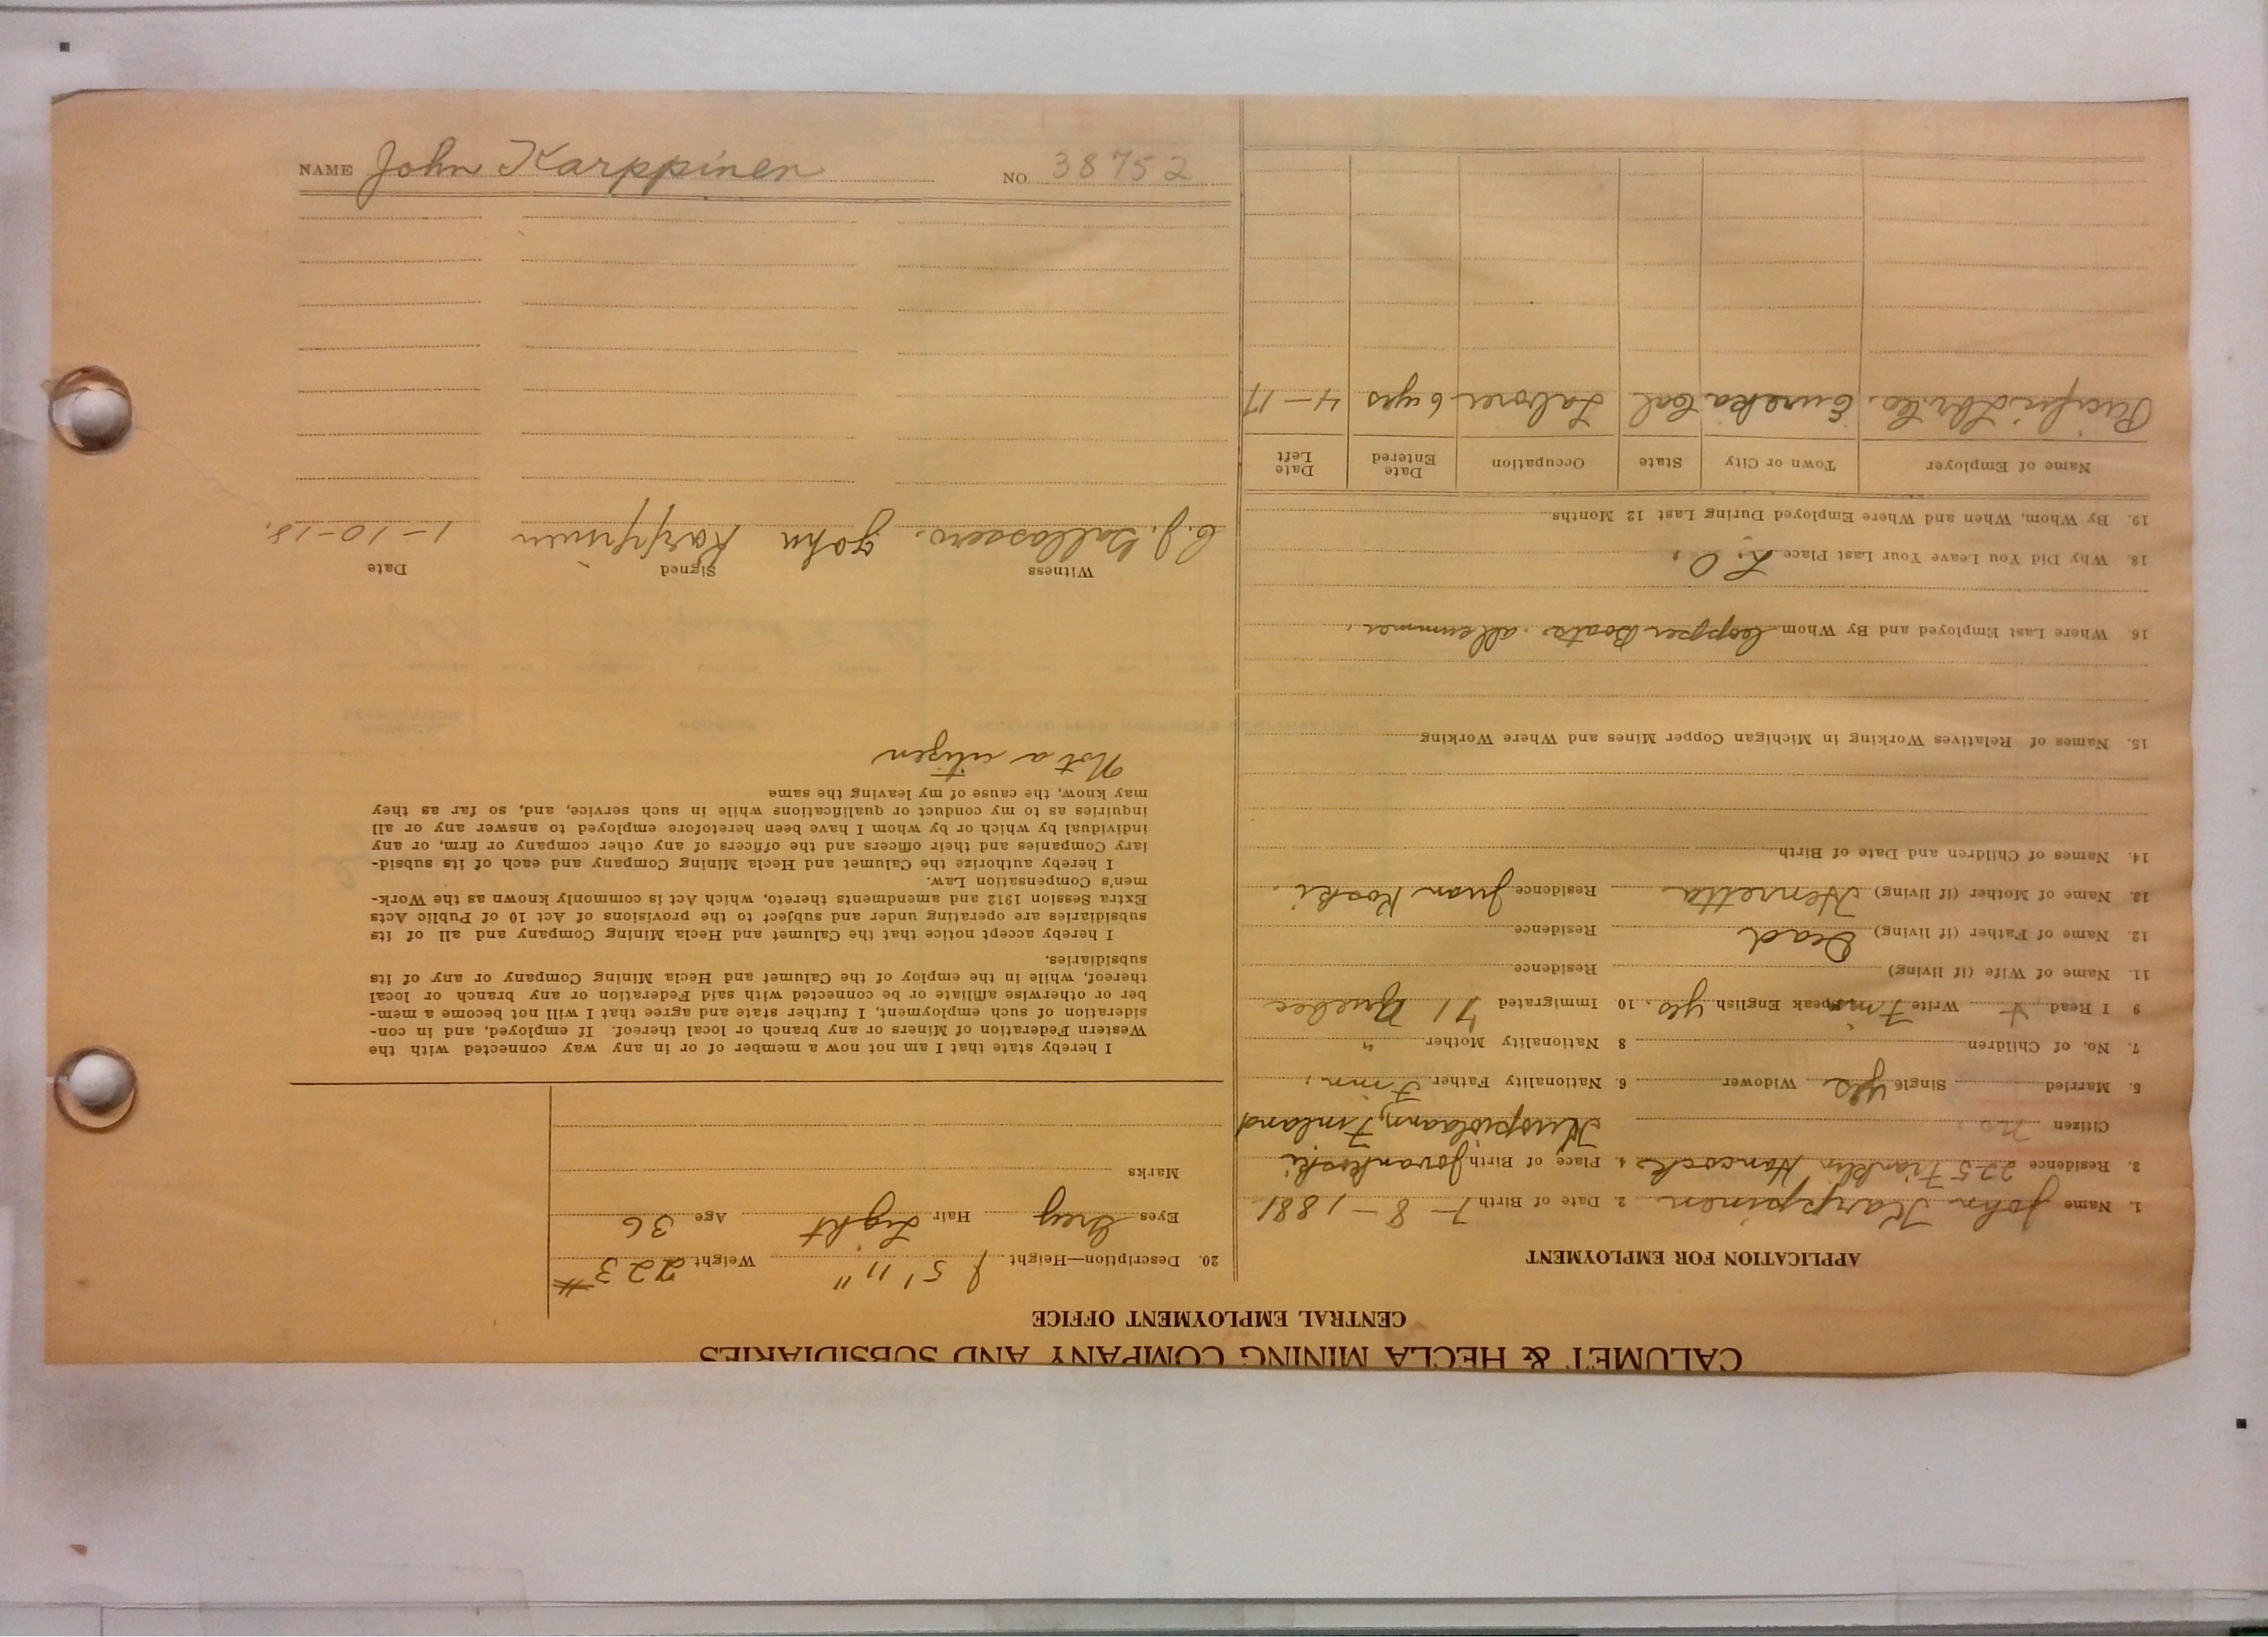 CALUMET & HECLA MINING COMPANY AND SUBSIDIARIES
CENTRAL EMPLOYMENT OFFICE
APPLICATION FOR EMPLOYMENT
1. Name John Karppinen 2. Date of Birth 7-8-1881
3. Residence 225 Franklin Hancock 4. Place of Birth
Citizen no. Finland
5. Married Single yes Widower 6. Nationality Father Finn.
7. No. of Children 8 Nationality Mother "
9 I Read + Write Finn Speak English yes. 10. Immigrated Quebec
11. Name of Wife (if living) Residence
12. Name of Father (if living) Dead Residence
13. Name of Mother (if living) Henretta Residence Juan Koski.
14. Names of Children and Date of Birth
15. Names of Relatives Working in Michigan Copper Mines and Where Working
16. Where Last Employed and By Whom Copper Boats.
18. Why Did You Leave Your Last Place L. O.
19. By Whom, When and Where Employed During Last 12 Months
Name of Employer Town or City State Occupation Date Entered Date Left
Pacific Lbr. Co. Eureka Cal Laborer 6 yrs 4-17
20. Description—Height 5' 11" Weight 223#
Eyes Grey Hair Light Age 36
Marks
I hereby state that I am not now a member of or in any way connected with the
Western Federation of Miners or any branch or local thereof. If employed, and in con-
sideration of such employment, I further state and agree that I will not become a mem-
ber or otherwise affiliate or be connected with said Federation or any branch or local
thereof, while in the employ of the Calumet and Hecla Mining Company or any of its
subsidiaries.
I hereby accept notice that the Calumet and Hecla Mining Company and all of its
subsidiaries are operating under and subject to the provisions of Act 10 of Public Acts
Extra Session 1912 and amendments thereto, which Act is commonly known as the Work-
men's Compensation Law.
I hereby authorize the Calumet and Hecla Mining Company and each of its subsid-
iary Companies and their officers and the officers of any other company or firm, or any
individual by which or by whom I have been heretofore employed to answer any or all
inquiries as to my conduct or qualifications while in such service, and, so far as they
may know, the cause of my leaving the same
Not a citizen
Witness Signed Date
C. J. John Karppinen 1-10-18.
NAME John Karppinen NO. 38752